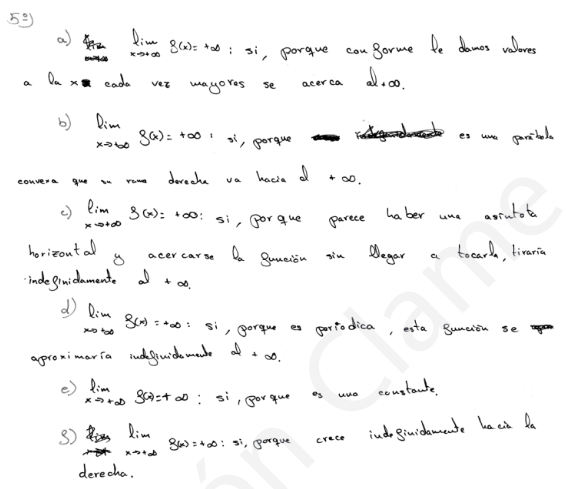 5º)
a) lim x→+∞ f(x)=+∞ : si, porque conforme le damos valores
a la x cada vez mayores se acerca al +∞.
b) lim x→+∞ f(x)=+∞ : si, porque es una parábola
convexa que su rama derecha va hacia el +∞.
c) lim x→+∞ f(x)=+∞: si, porque parece haber una asíntota
horizontal y acercarse la función sin llegar a tocarla, tiraría
indefinidamente al +∞.
d) lim x→+∞ f(x)=+∞: si, porque es periodica, esta función se
aproximaría indefinidamente al +∞.
e) lim x→+∞ f(x)=+∞ : si, porque es una constante.
f) lim x→+∞ f(x)=+∞: si, porque crece indefinidamente hacia la
derecha.
ón Clame